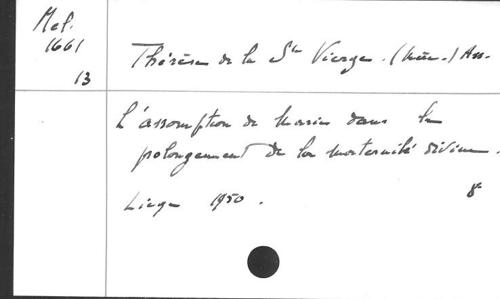 Mel.
1661
13
Thérèse de la Ste Vierge. (Mère.) Ass.
L'assomption de Marie dans le
prolongement de la maternité divine.
Liège 1950. 8°